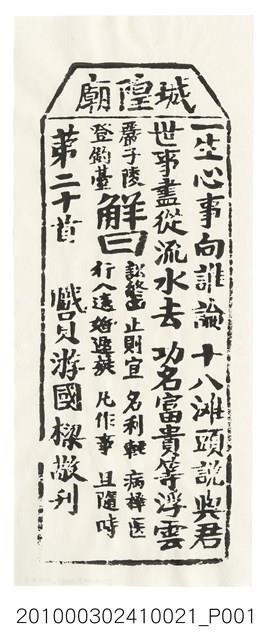 城隍廟
一生心事向誰論　十八灘頭說與君
世事盡從流水去　功名富貴等浮雲
嚴子陵
登釣臺
解曰
訟終凶　止則宜　名利輕　病擇医
行人遠　婚遲疑　凡作事　且隨時
第二十首　游國樑敬刊
201000302410021_P001